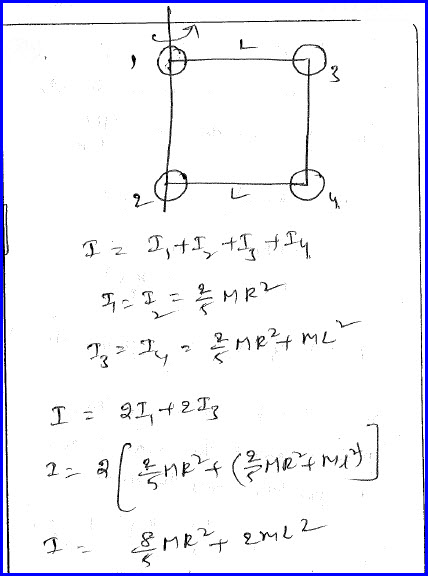 1 L 3
2 L 4
I = I₁+I₂+I₃+I₄
I₁=I₂ = 2/5 MR²
I₃=I₄ = 2/5 MR²+ML²
I = 2I₁+2I₃
I = 2[2/5 MR²+(2/5 MR²+ML²)]
I = 8/5 MR²+2ML²